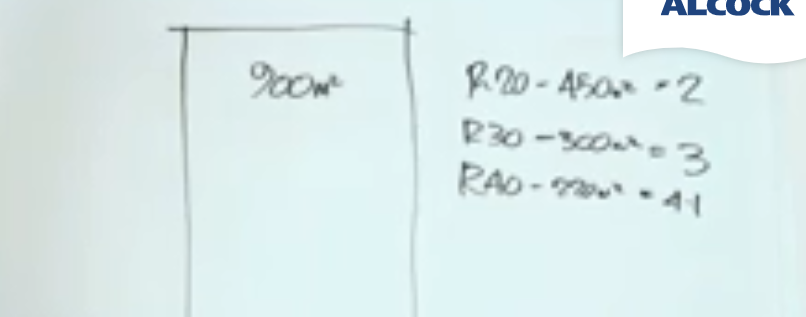 ALCOCK
900m²
R20 - 450m² = 2
R30 - 300m² = 3
R40 - 220m² = 4.1